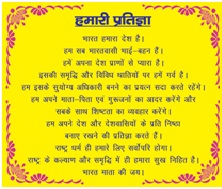 हमारी प्रतिज्ञा
भारत हमारा देश है।
हम सब भारतवासी भाई-बहन हैं।
हमें अपना देश प्राणों से प्यारा है।
इसकी समृद्धि और विविध संस्कृति पर हमें गर्व है।
हम इसके सुयोग्य अधिकारी बनने का प्रयत्न सदा करते रहेंगे।
हम अपने माता-पिता एवं गुरूजनों का आदर करेंगे और
सबके साथ शिष्टता का व्यवहार करेंगे।
हम अपने देश और देशवासियों के प्रति निष्ठा
बनाए रखने की प्रतिज्ञा करते हैं।
राष्ट्र धर्म ही हमारे लिए सर्वोपरि होगा।
राष्ट्र के कल्याण और समृद्धि में ही हमारा सुख निहित है।
भारत माता की जय।